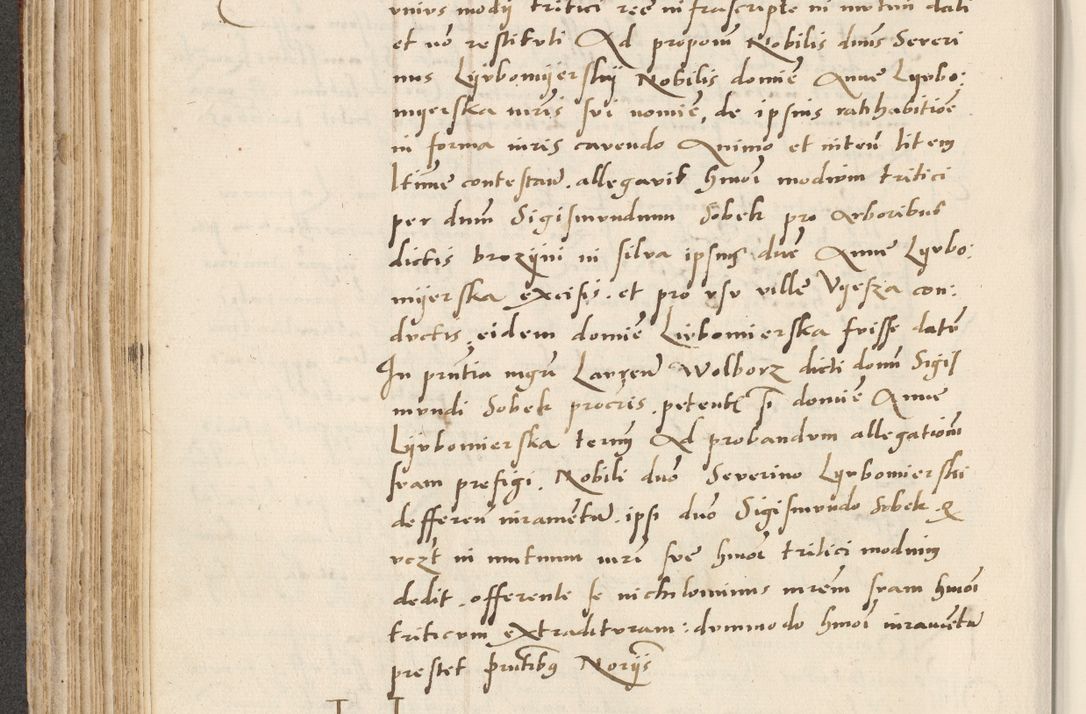 vnius modii tritici ree infrascripte in mutuu dati
et no restituti Ad proponm Nobilis dnus Severi
nus Lyvbomyerskij Nobilis domie Anne Lyvbo:
myerska mris sui nomie, de ipsius ratihabitioe
in forma iuris cavendo Animo et inten litem
ltime contestan. allegavit hmoi modium tritici
per dnum Sigismundum Sobek pro Arboribus
dictis brozyni in silva ipsius dne Anne Lyvbo:
myerska excisis. et pro usu ville Vgesza con:
ductis, eidem domie Livbomierska fuisse datu
In prntia mgri Lauren Wolborz dicti domi Sigis
mundi Sobek procris. petent si domie Anne
Lyvbomierska termi Ad probandum allegationi
suam prefigi. Nobili dno Severino Lyvbomierski
defferen iuramentu. ipsi dno Sigismundo Sobek. &
vczt in mutuum mri sue hmoi tritici modium
dedit. offerente se nichilominus mrem suam hmoi
triticum extradituram: dummodo hmoi iuramentu
prestet prntibus Noriis